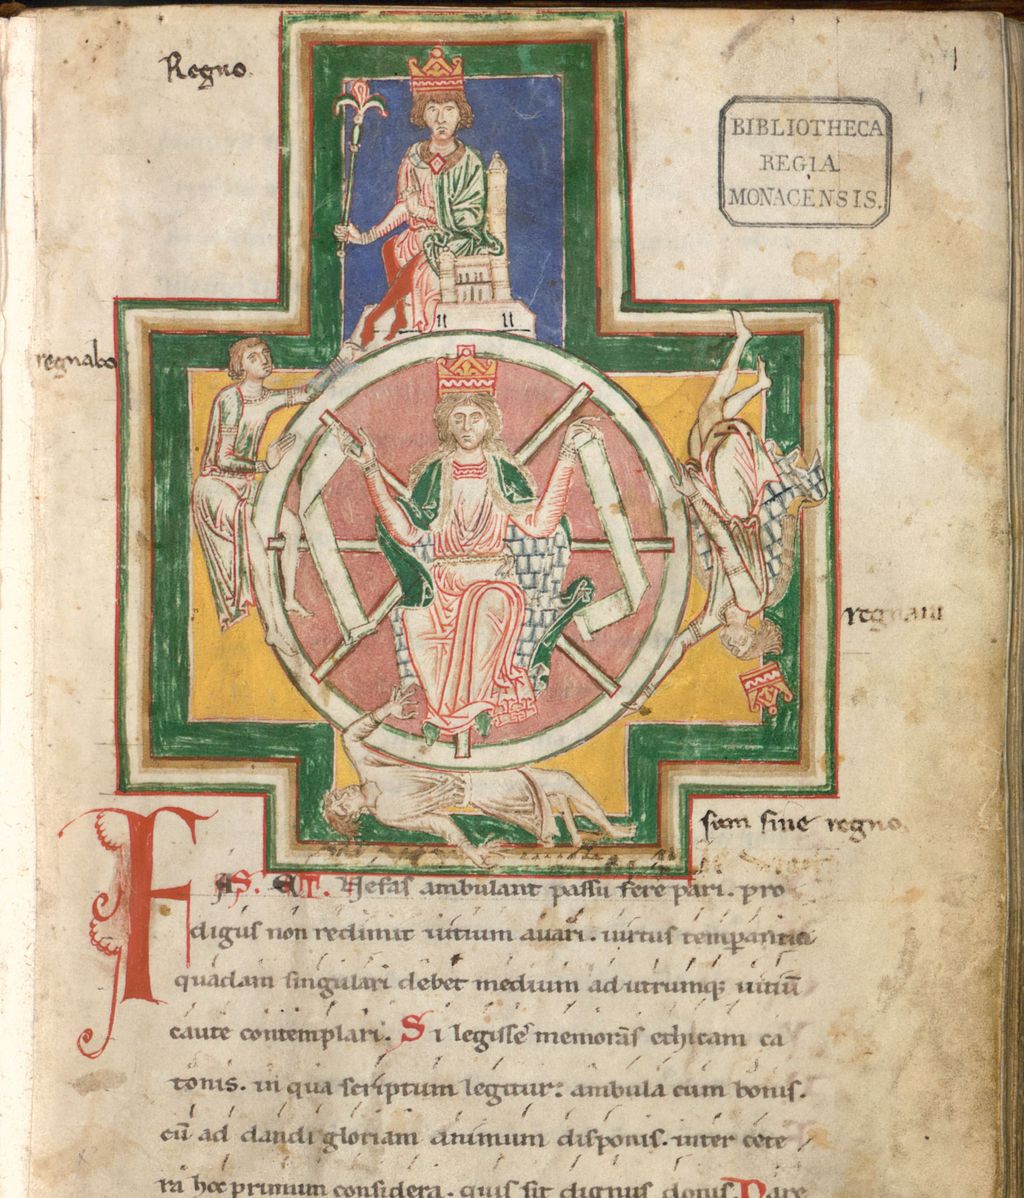 Regno.
I
BIBLIOTHECA
REGIA
MONACENSIS.
regnabo
regnaui
sum sine regno.
FAS. ET. Nefas ambulant passu fere pari. pro
digus non redimit uitium auari. uirtus temperantia
quadam singulari debet medium ad utrumq; uitiū
caute contemplari. Si legisse memorās ethicam ca
tonis. in qua scriptum legitur: ambula cum bonis.
cū ad dandi gloriam animum disponis. inter cete
ra hoc primum considera. quis sit dignus donis. Dare